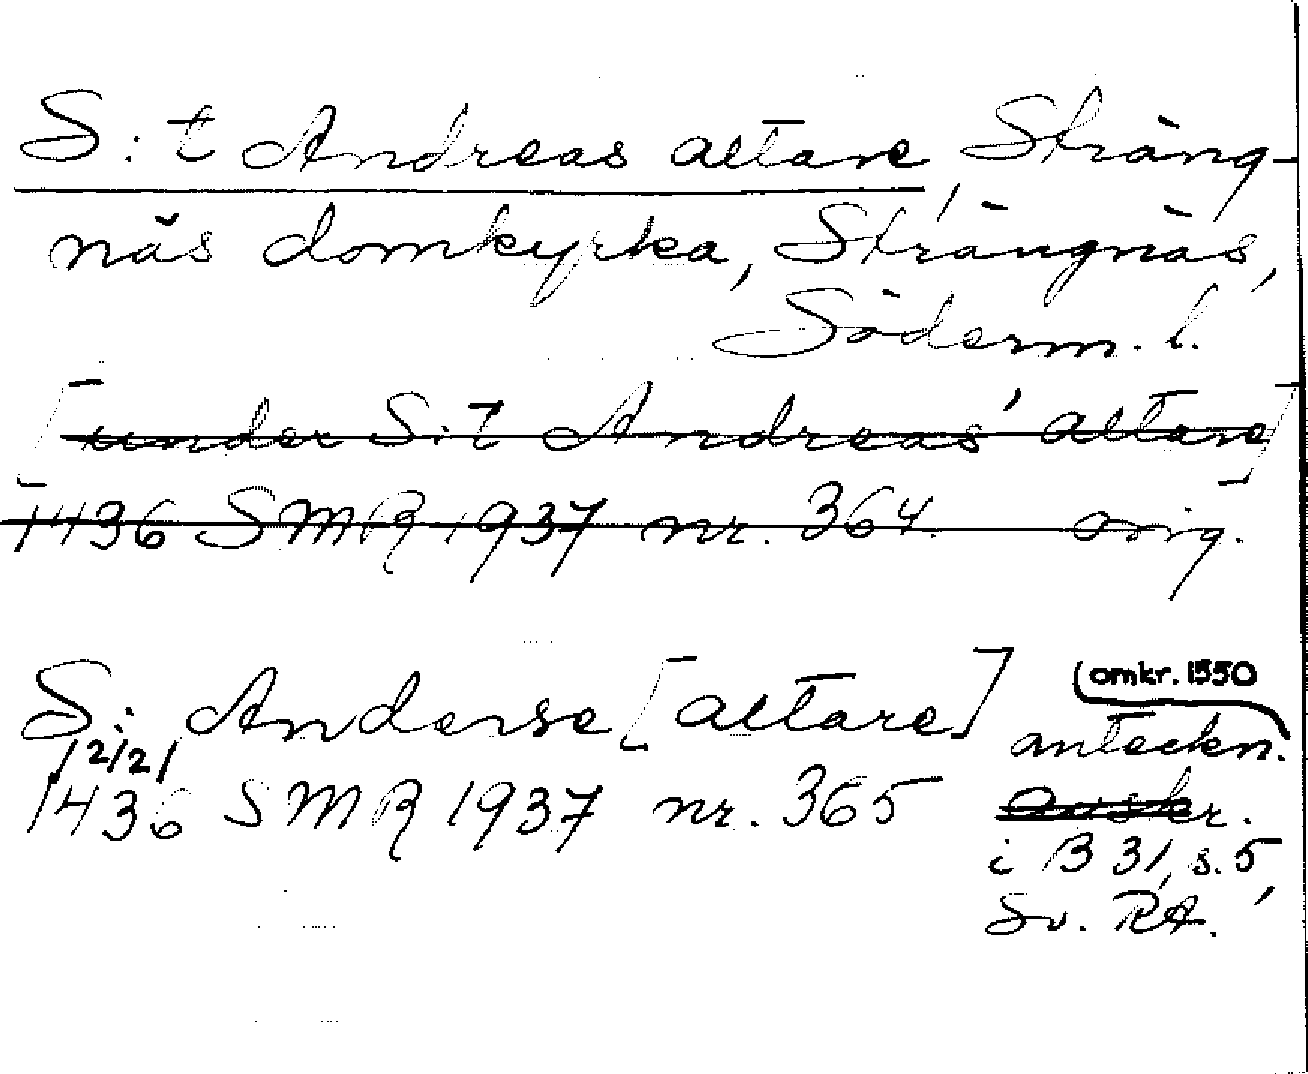 S:t Andreas altare, Sträng-
näs domkyrka, Strängnäs,
Söderm. l.
[under S:t Andreas' altare]
1436 SMR 1937 nr. 364. orig.
S: Anderse [altare]
omkr. 1550
anteckn.
12/21
1436 SMR 1937 nr. 365 avskr.
i B 31, s. 5,
Sv. RA.